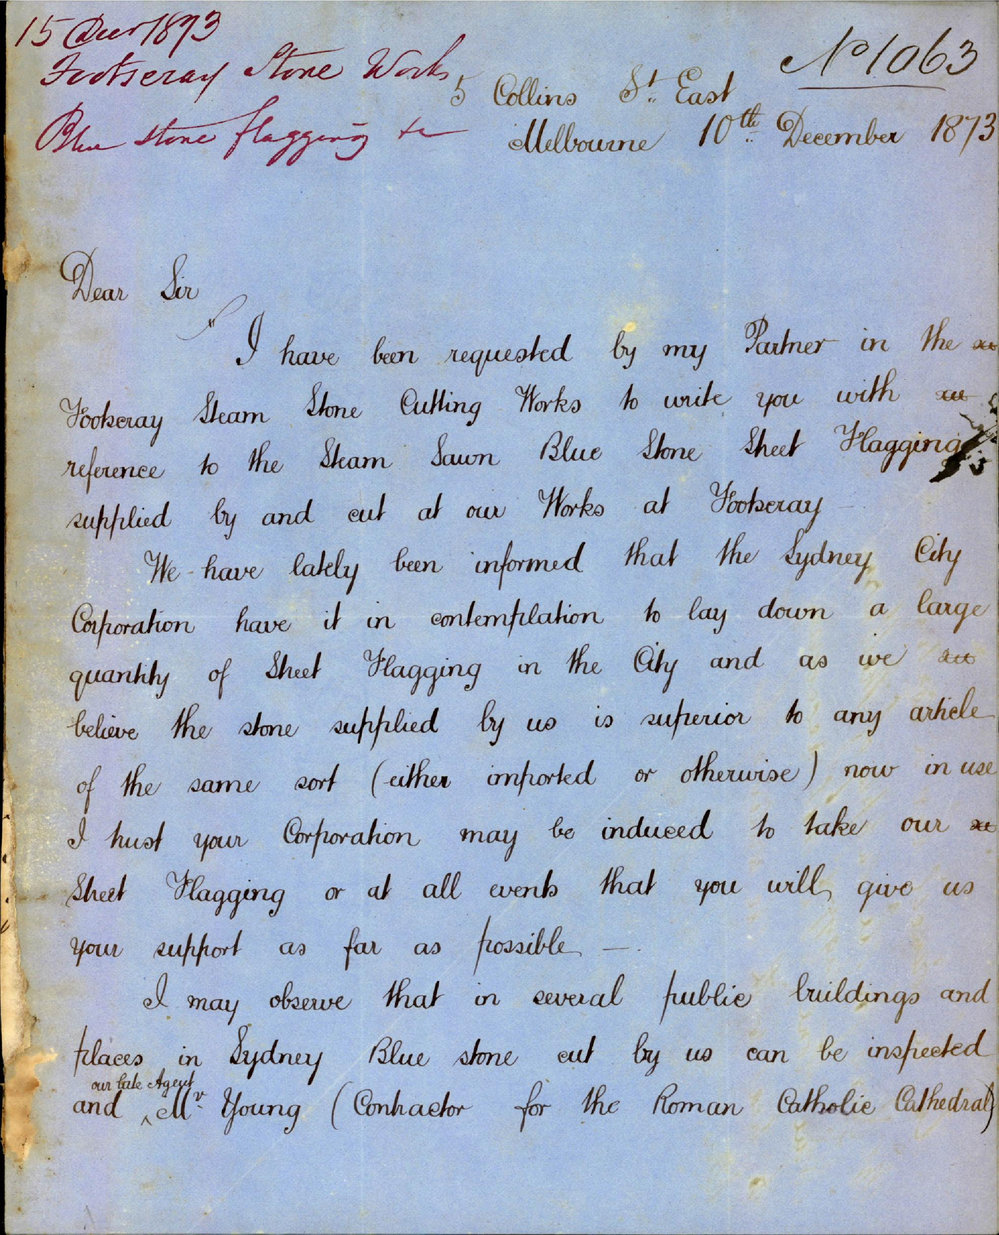 15 Decr 1873
Footscray Stone Works
Blue stone flagging &c
No 1063
5 Collins St. East
Melbourne 10th December 1873
Dear Sir
I have been requested by my Partner in the
Footscray Steam Stone Cutting Works to write you with
reference to the Steam Sawn Blue Stone Street Flagging
supplied by and cut at our Works at Footscray
We have lately been informed that the Sydney City
Corporation have it in contemplation to lay down a large
quantity of Street Flagging in the City and as we
believe the stone supplied by us is superior to any article
of the same sort (either imported or otherwise) now in use
I trust your Corporation may be induced to take our
Street Flagging or at all events that you will give us
your support as far as possible —
I may observe that in several public buildings and
places in Sydney Blue stone cut by us can be inspected
our late Agent
and ^ Mr. Young (Contractor for the Roman Catholic Cathedral)